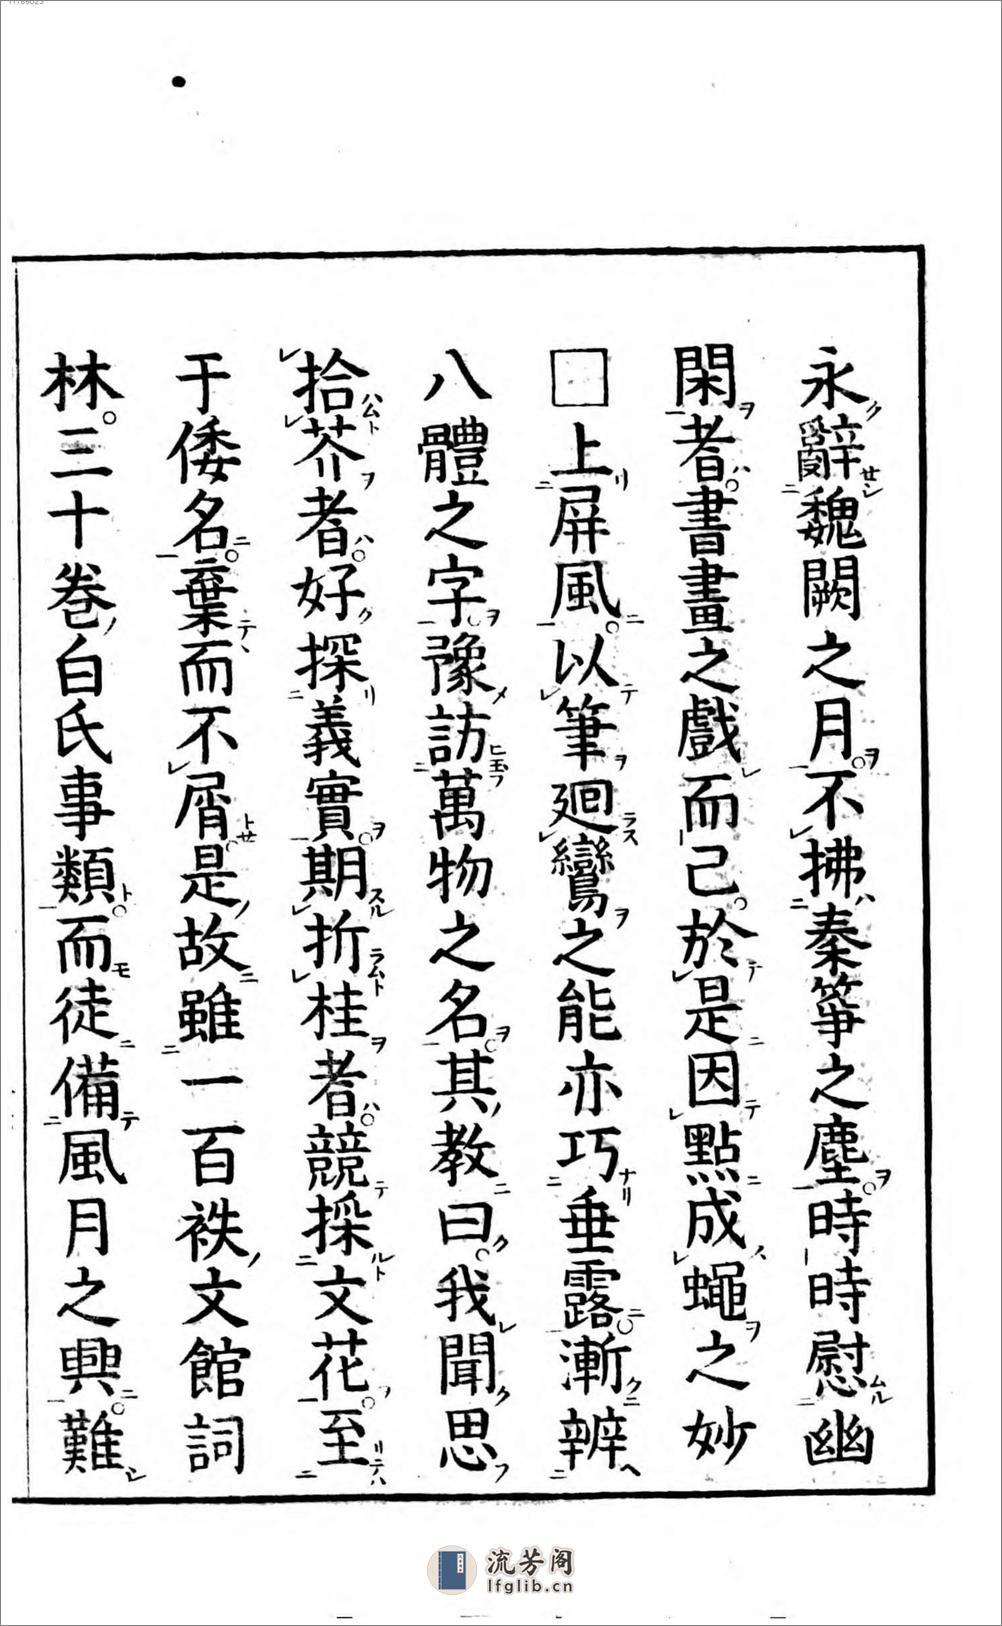 永辭魏闕之月不拂秦箏之塵時時慰幽
閑者書畫之戲而已於是因點成蠅之妙
□上屏風以筆廻鸞之能亦巧垂露漸辨
八體之字豫訪萬物之名其教曰我聞思
拾芥者好探義實期折桂者競採文花至
于倭名棄而不屑是故雖一百袟文館詞
林三十卷白氏事類而徒備風月之興難
流芳阁
lfglib.cn